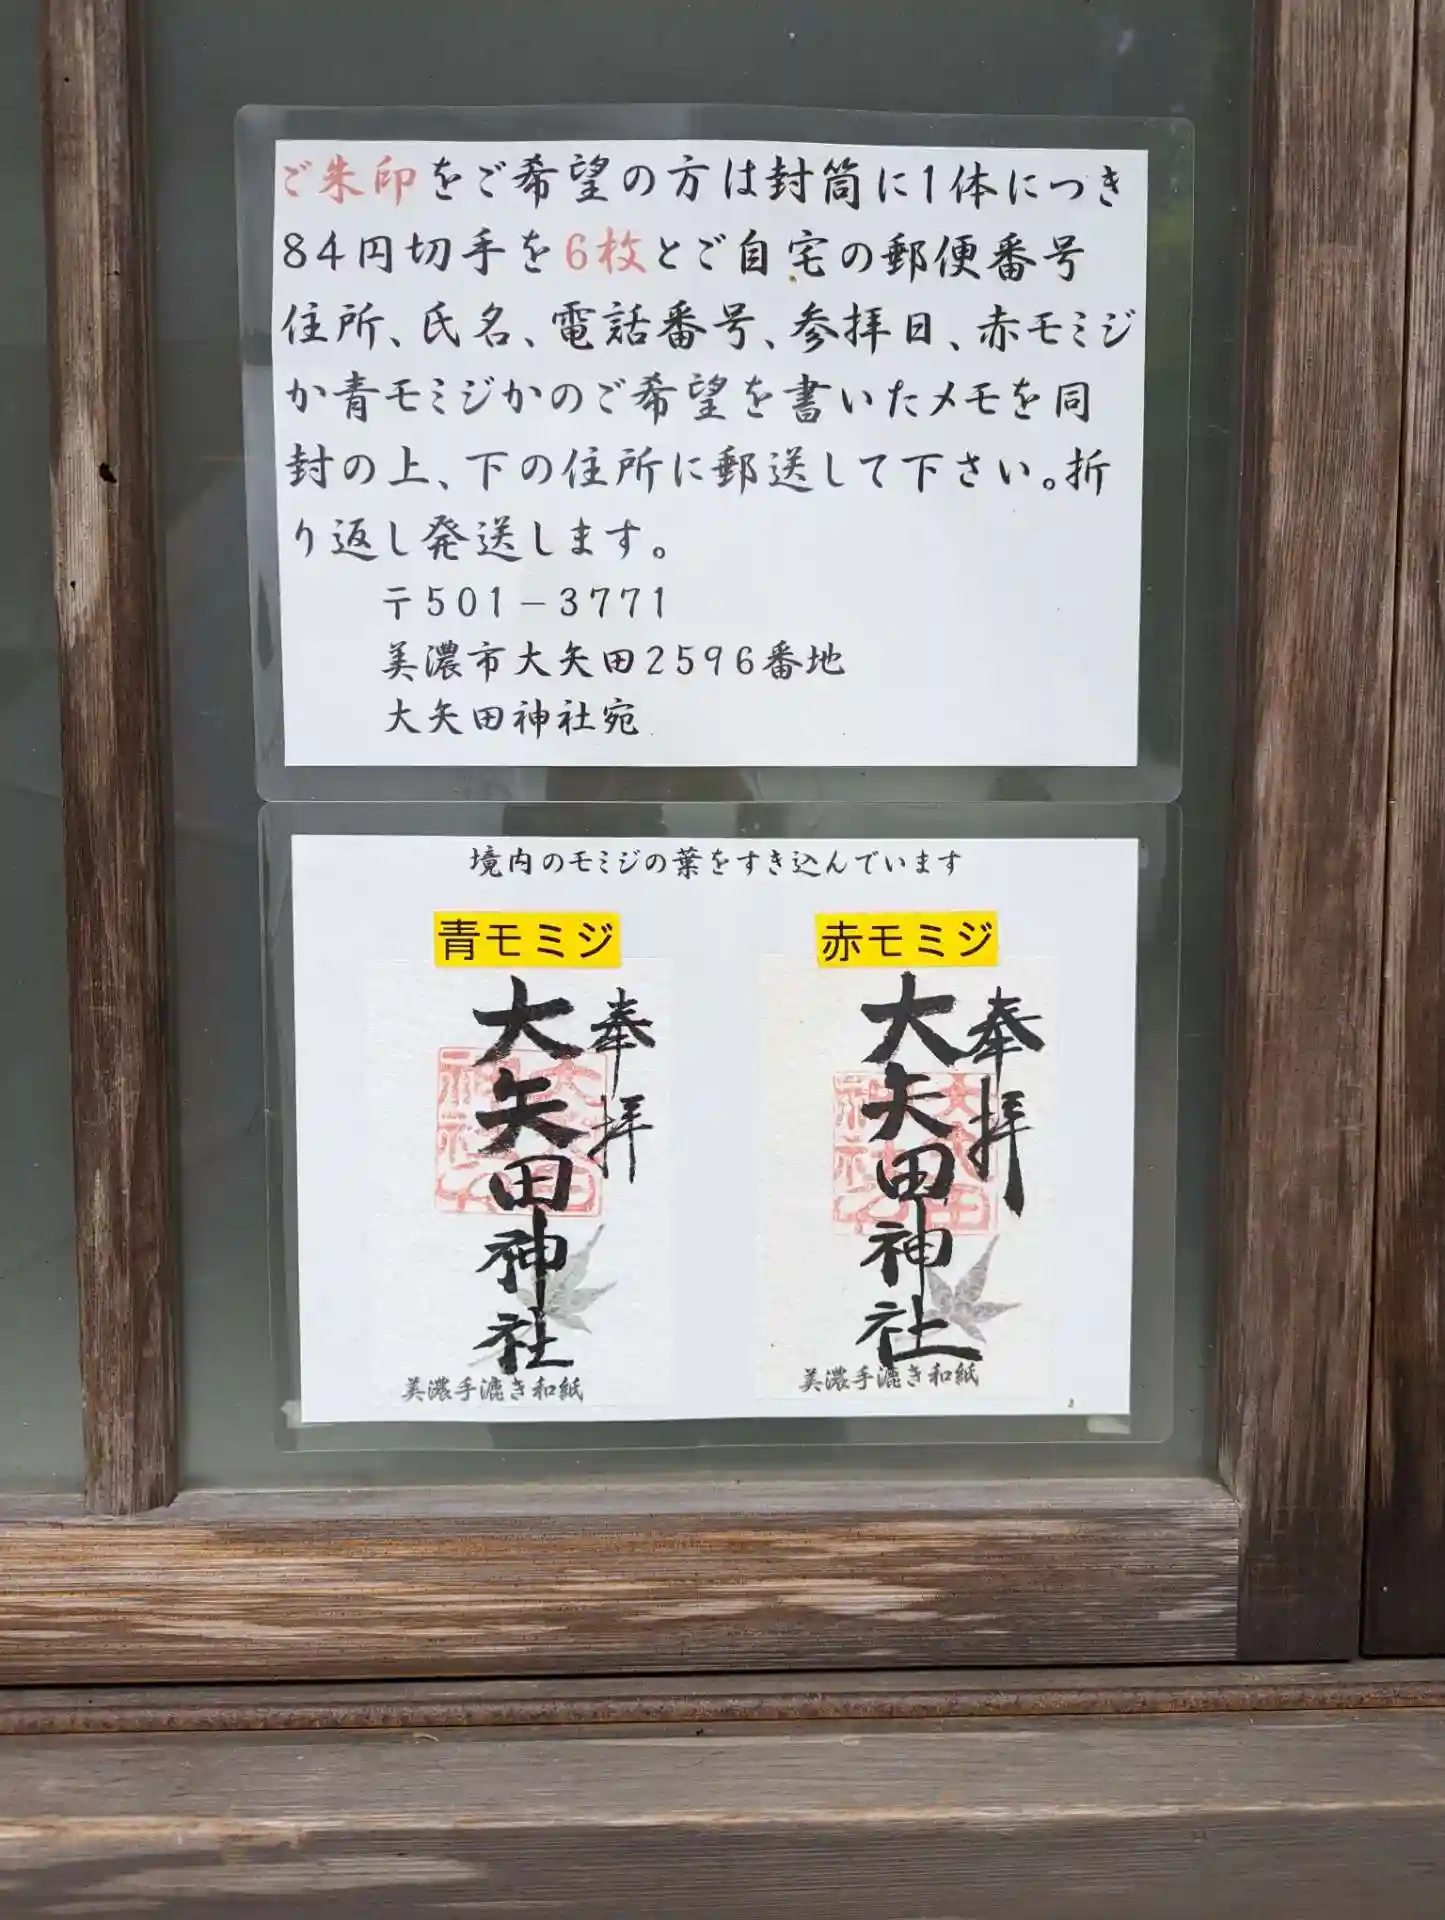 ご朱印をご希望の方は封筒に1体につき
84円切手を6枚とご自宅の郵便番号
住所、氏名、電話番号、参拝日、赤モミジ
か青モミジかのご希望を書いたメモを同
封の上、下の住所に郵送して下さい。折
り返し発送します。
〒501-3771
美濃市大矢田2596番地
大矢田神社宛
境内のモミジの葉をすき込んでいます
青モミジ
奉拝
大矢田神社
美濃手漉き和紙
赤モミジ
奉拝
大矢田神社
美濃手漉き和紙